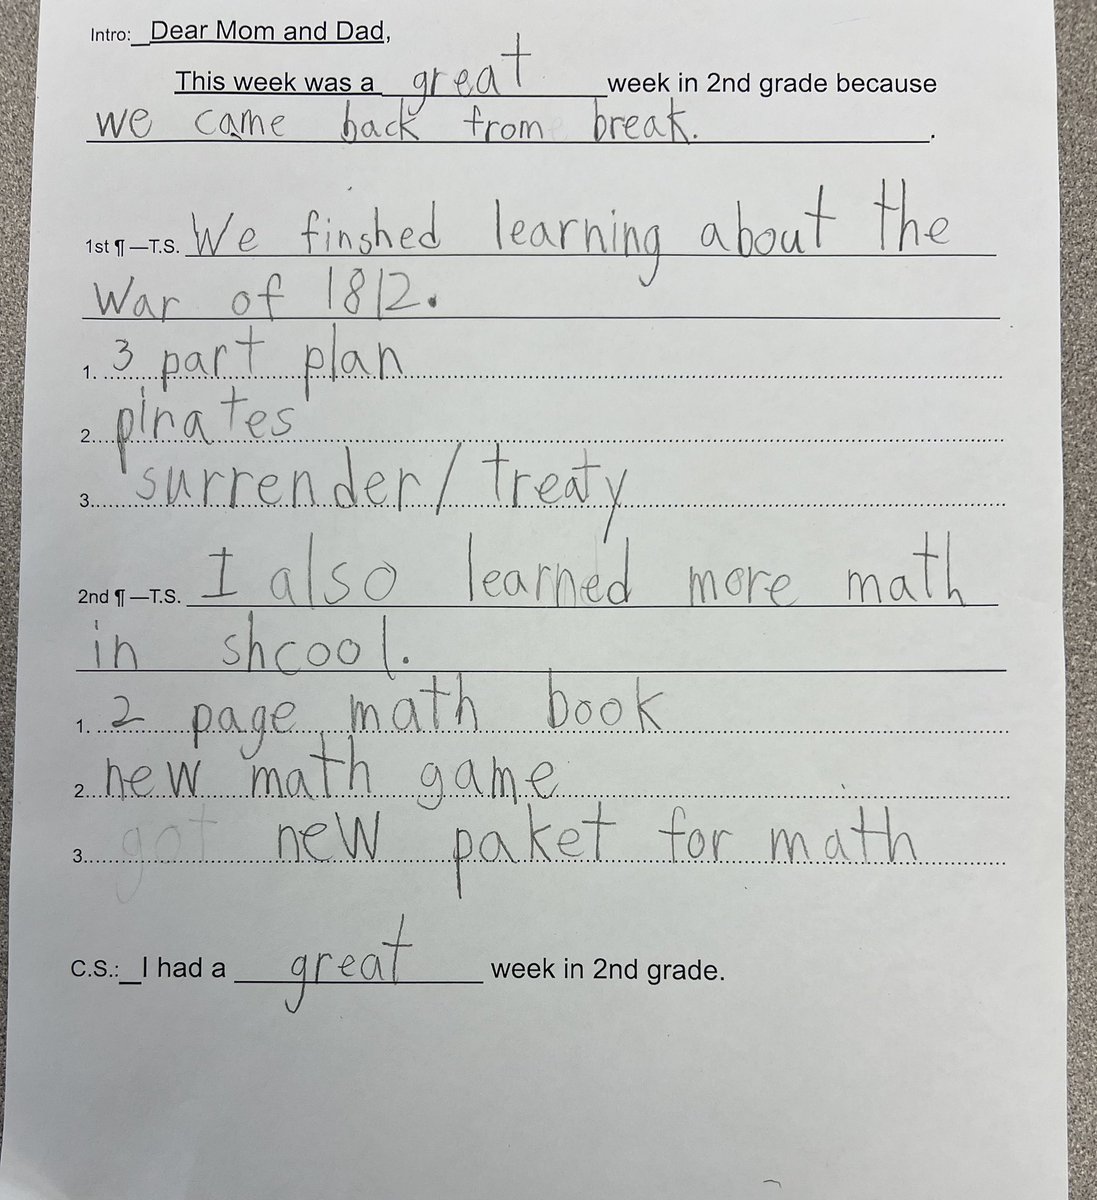 Intro: Dear Mom and Dad,
This week was a great week in 2nd grade because
we came back from break. .
1st ¶—T.S. We finshed learning about the
War of 1812.
1. 3 part plan
2. pirates
3. surrender/treaty
2nd ¶—T.S. I also learned more math
in shcool.
1. 2 page math book
2. new math game
3. got new paket for math
C.S.: I had a great week in 2nd grade.